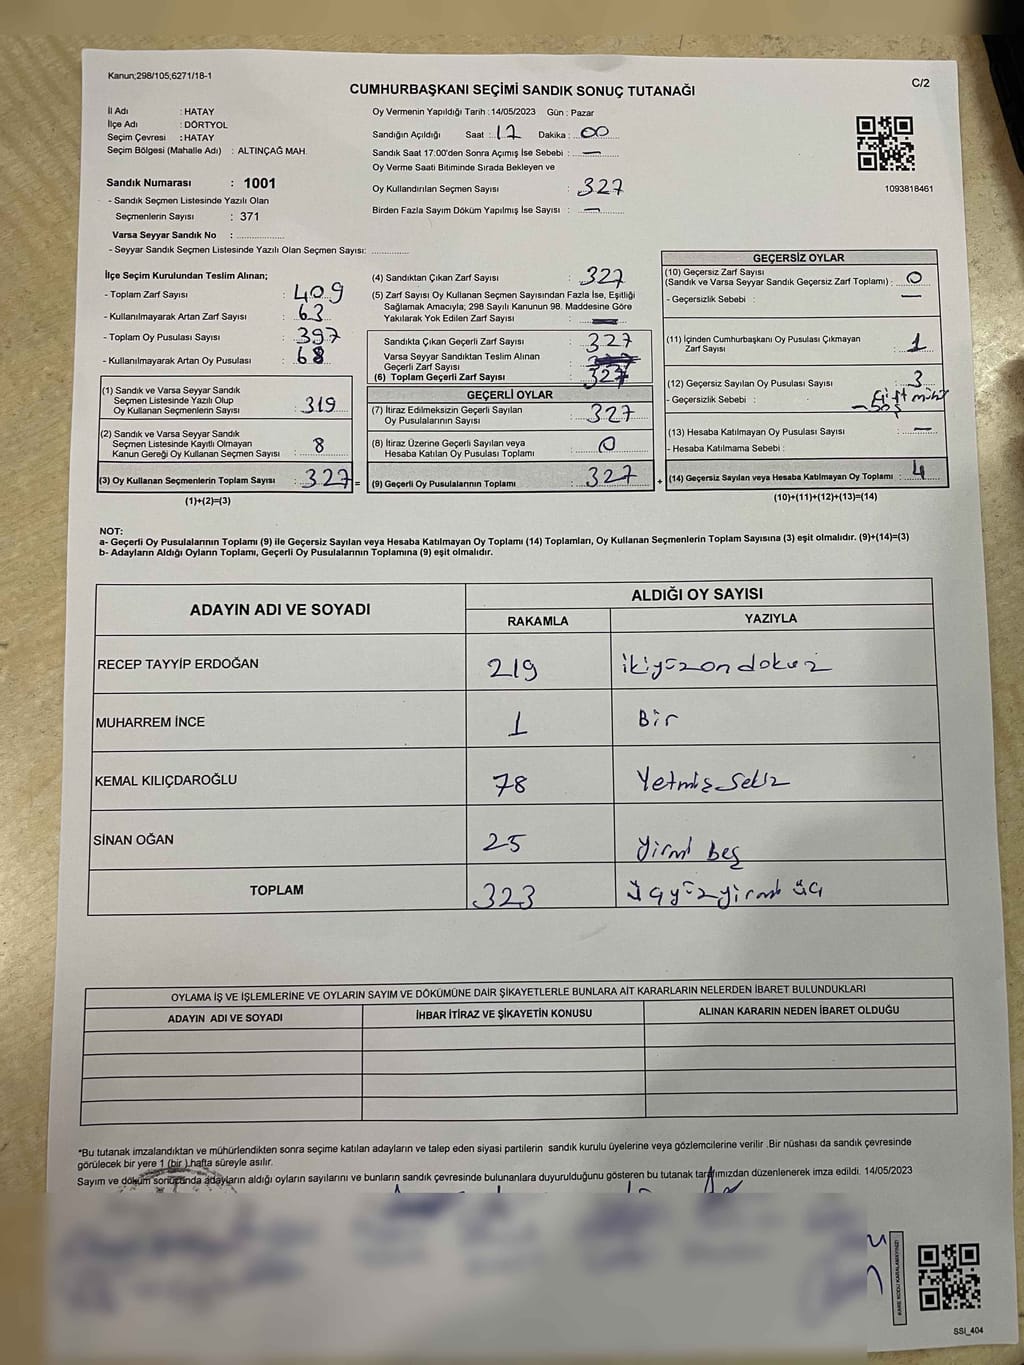 Kanun;298/105;6271/18-1
C/2
CUMHURBAŞKANI SEÇİMİ SANDIK SONUÇ TUTANAĞI
İl Adı : HATAY
İlçe Adı : DÖRTYOL
Seçim Çevresi : HATAY
Seçim Bölgesi (Mahalle Adı) : ALTINÇAĞ MAH.
Sandık Numarası : 1001
- Sandık Seçmen Listesinde Yazılı Olan
Seçmenlerin Sayısı : 371
Varsa Seyyar Sandık No :
- Seyyar Sandık Seçmen Listesinde Yazılı Olan Seçmen Sayısı:
Oy Vermenin Yapıldığı Tarih : 14/05/2023 Gün : Pazar
Sandığın Açıldığı Saat : 17 Dakika : 00
Sandık Saat 17:00'den Sonra Açımış İse Sebebi : —
Oy Verme Saati Bitiminde Sırada Bekleyen ve
Oy Kullandırılan Seçmen Sayısı : 327
Birden Fazla Sayım Döküm Yapılmış İse Sayısı : —
1093818461
İlçe Seçim Kurulundan Teslim Alınan;
- Toplam Zarf Sayısı : 409
- Kullanılmayarak Artan Zarf Sayısı : 63
- Toplam Oy Pusulası Sayısı : 397
- Kullanılmayarak Artan Oy Pusulası : 68
(1) Sandık ve Varsa Seyyar Sandık
Seçmen Listesinde Yazılı Olup
Oy Kullanan Seçmenlerin Sayısı : 319
(2) Sandık ve Varsa Seyyar Sandık
Seçmen Listesinde Kayıtlı Olmayan
Kanun Gereği Oy Kullanan Seçmen Sayısı : 8
(3) Oy Kullanan Seçmenlerin Toplam Sayısı : 327 =
(1)+(2)=(3)
(4) Sandıktan Çıkan Zarf Sayısı : 327
(5) Zarf Sayısı Oy Kullanan Seçmen Sayısından Fazla İse, Eşitliği
Sağlamak Amacıyla; 298 Sayılı Kanunun 98. Maddesine Göre
Yakılarak Yok Edilen Zarf Sayısı : —
Sandıkta Çıkan Geçerli Zarf Sayısı : 327
Varsa Seyyar Sandıktan Teslim Alınan
Geçerli Zarf Sayısı :
(6) Toplam Geçerli Zarf Sayısı : 327
GEÇERLİ OYLAR
(7) İtiraz Edilmeksizin Geçerli Sayılan
Oy Pusulalarının Sayısı : 327
(8) İtiraz Üzerine Geçerli Sayılan veya
Hesaba Katılan Oy Pusulası Toplamı : 0
(9) Geçerli Oy Pusulalarının Toplamı : 327 +
GEÇERSİZ OYLAR
(10) Geçersiz Zarf Sayısı
(Sandık ve Varsa Seyyar Sandık Geçersiz Zarf Toplamı) : 0
- Geçersizlik Sebebi : —
(11) İçinden Cumhurbaşkanı Oy Pusulası Çıkmayan
Zarf Sayısı : 1
(12) Geçersiz Sayılan Oy Pusulası Sayısı : 3
- Geçersizlik Sebebi : Çift mühür
(13) Hesaba Katılmayan Oy Pusulası Sayısı : —
- Hesaba Katılmama Sebebi :
(14) Geçersiz Sayılan veya Hesaba Katılmayan Oy Toplamı : 4
(10)+(11)+(12)+(13)=(14)
NOT:
a- Geçerli Oy Pusulalarının Toplamı (9) ile Geçersiz Sayılan veya Hesaba Katılmayan Oy Toplamı (14) Toplamları, Oy Kullanan Seçmenlerin Toplam Sayısına (3) eşit olmalıdır. (9)+(14)=(3)
b- Adayların Aldığı Oyların Toplamı, Geçerli Oy Pusulalarının Toplamına (9) eşit olmalıdır.
ADAYIN ADI VE SOYADI
ALDIĞI OY SAYISI
RAKAMLA YAZIYLA
RECEP TAYYİP ERDOĞAN 219 ikiyüzondokuz
MUHARREM İNCE 1 Bir
KEMAL KILIÇDAROĞLU 78 Yetmiş sekiz
SİNAN OĞAN 25 Yirmi beş
TOPLAM 323 üçyüzyirmi üç
OYLAMA İŞ VE İŞLEMLERİNE VE OYLARIN SAYIM VE DÖKÜMÜNE DAİR ŞİKAYETLERLE BUNLARA AİT KARARLARIN NELERDEN İBARET BULUNDUKLARI
ADAYIN ADI VE SOYADI İHBAR İTİRAZ VE ŞİKAYETİN KONUSU ALINAN KARARIN NEDEN İBARET OLDUĞU
*Bu tutanak imzalandıktan ve mühürlendikten sonra seçime katılan adayların ve talep eden siyasi partilerin sandık kurulu üyelerine veya gözlemcilerine verilir .Bir nüshası da sandık çevresinde
görülecek bir yere 1 (bir ) hafta süreyle asılır.
Sayım ve döküm sonucunda adayların aldığı oyların sayılarını ve bunların sandık çevresinde bulunanlara duyurulduğunu gösteren bu tutanak tarafımızdan düzenlenerek imza edildi. 14/05/2023
KARE KODU KARALAMAYINIZ!
SSİ_404